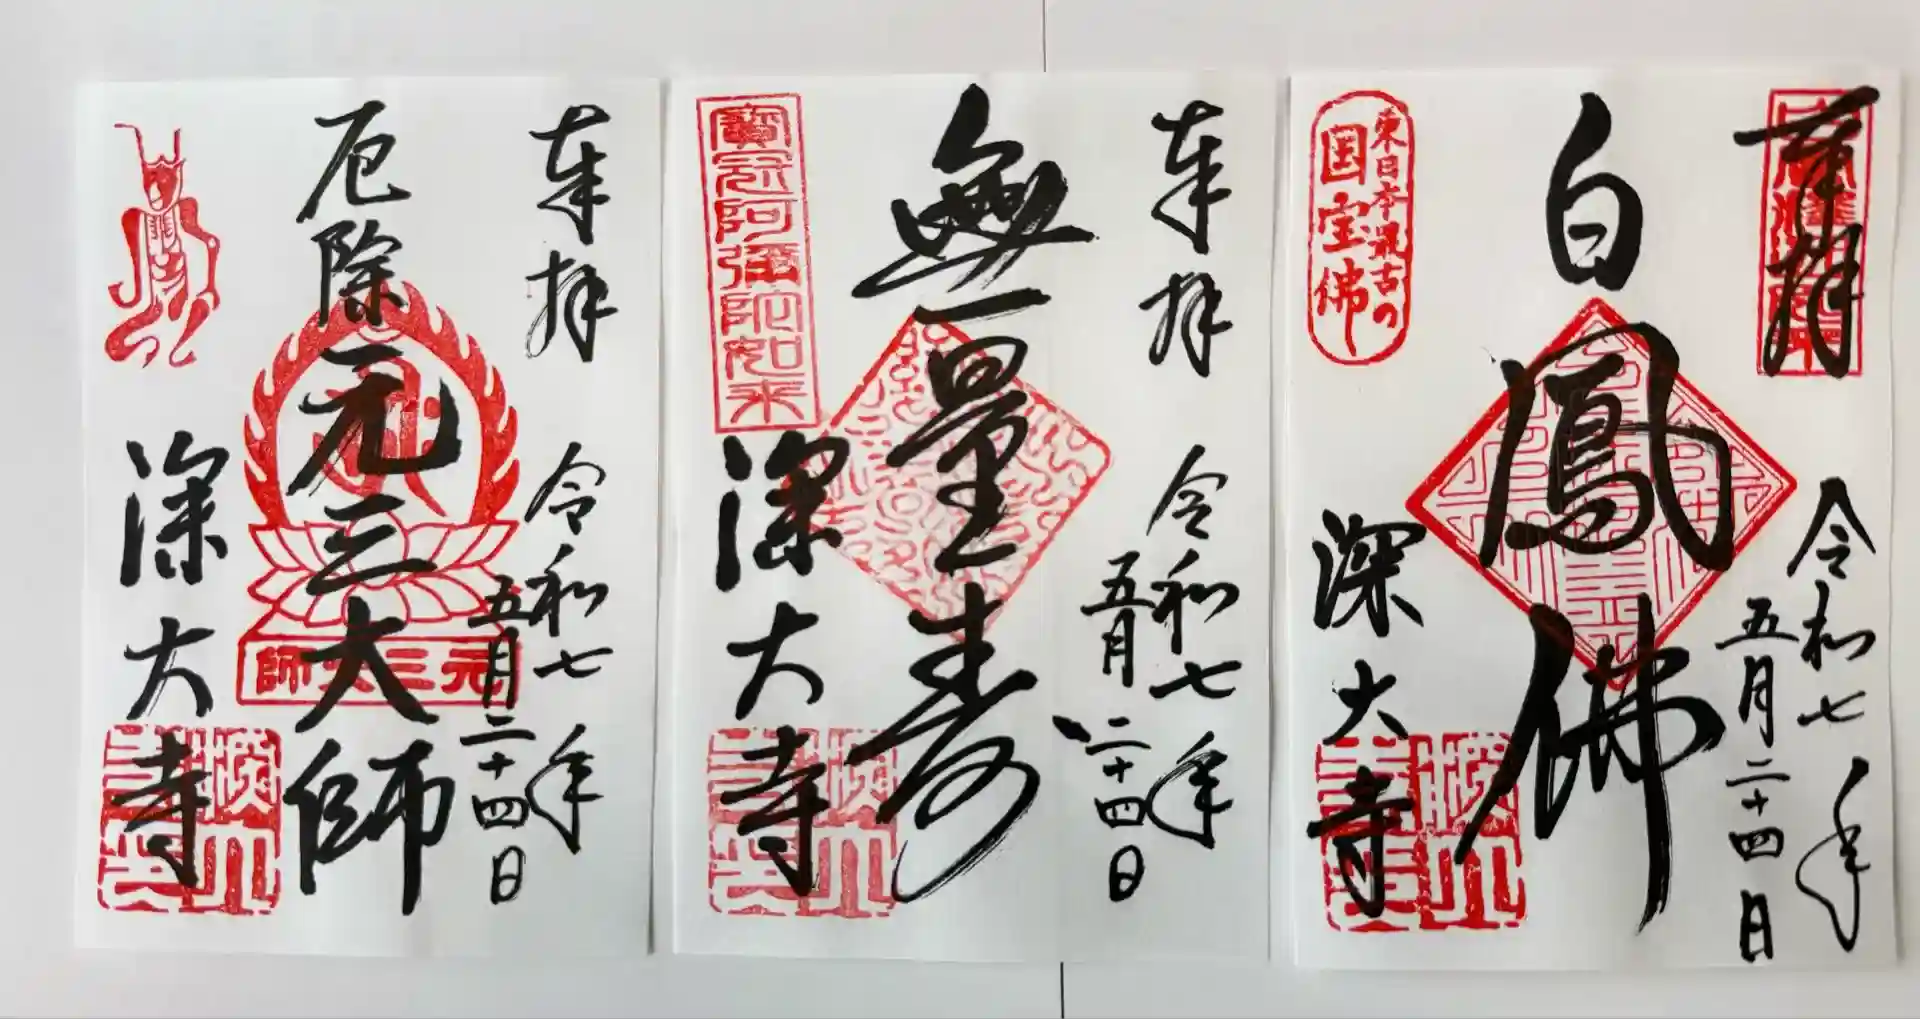 奉拝
令和七年
五月二十四日
厄除元三大師
元三大師
深大寺
奉拝
令和七年
五月二十四日
無量寿
寶冠阿彌陀如来
深大寺
奉拝
令和七年
五月二十四日
白鳳佛
東日本最古の
国宝佛
深大寺